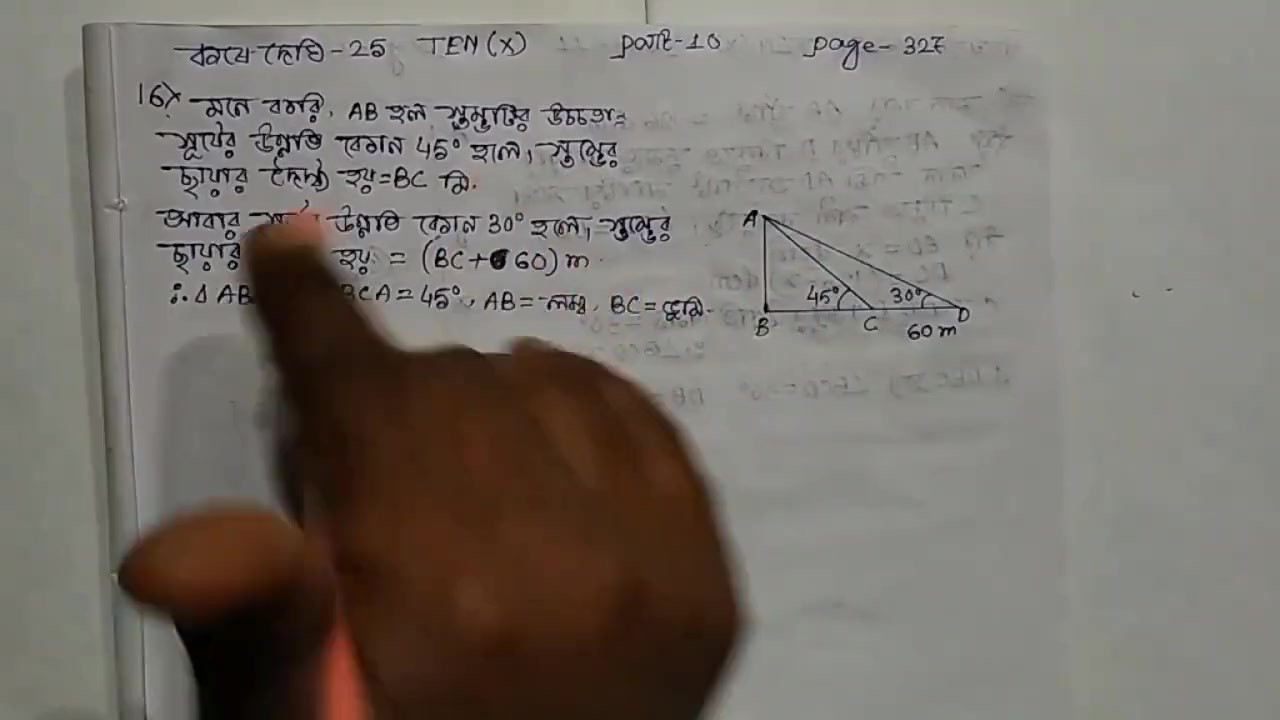 কষে দেখি - 25 TEN (X) part-10 page- 327
16) মনে করি, AB হল স্তম্ভটির উচ্চতা,
সূর্যের উন্নতি কোন 45° হলে, স্তম্ভের
ছায়ার দৈর্ঘ্য হয় = BC মি.
আবার উন্নতি কোন 30° হলে, স্তম্ভের
ছায়ার হয় = (BC+60) m
∴ Δ AB BCA = 45°, AB = লম্ব, BC = ভূমি.
A
45° 30°
B C D
60 m